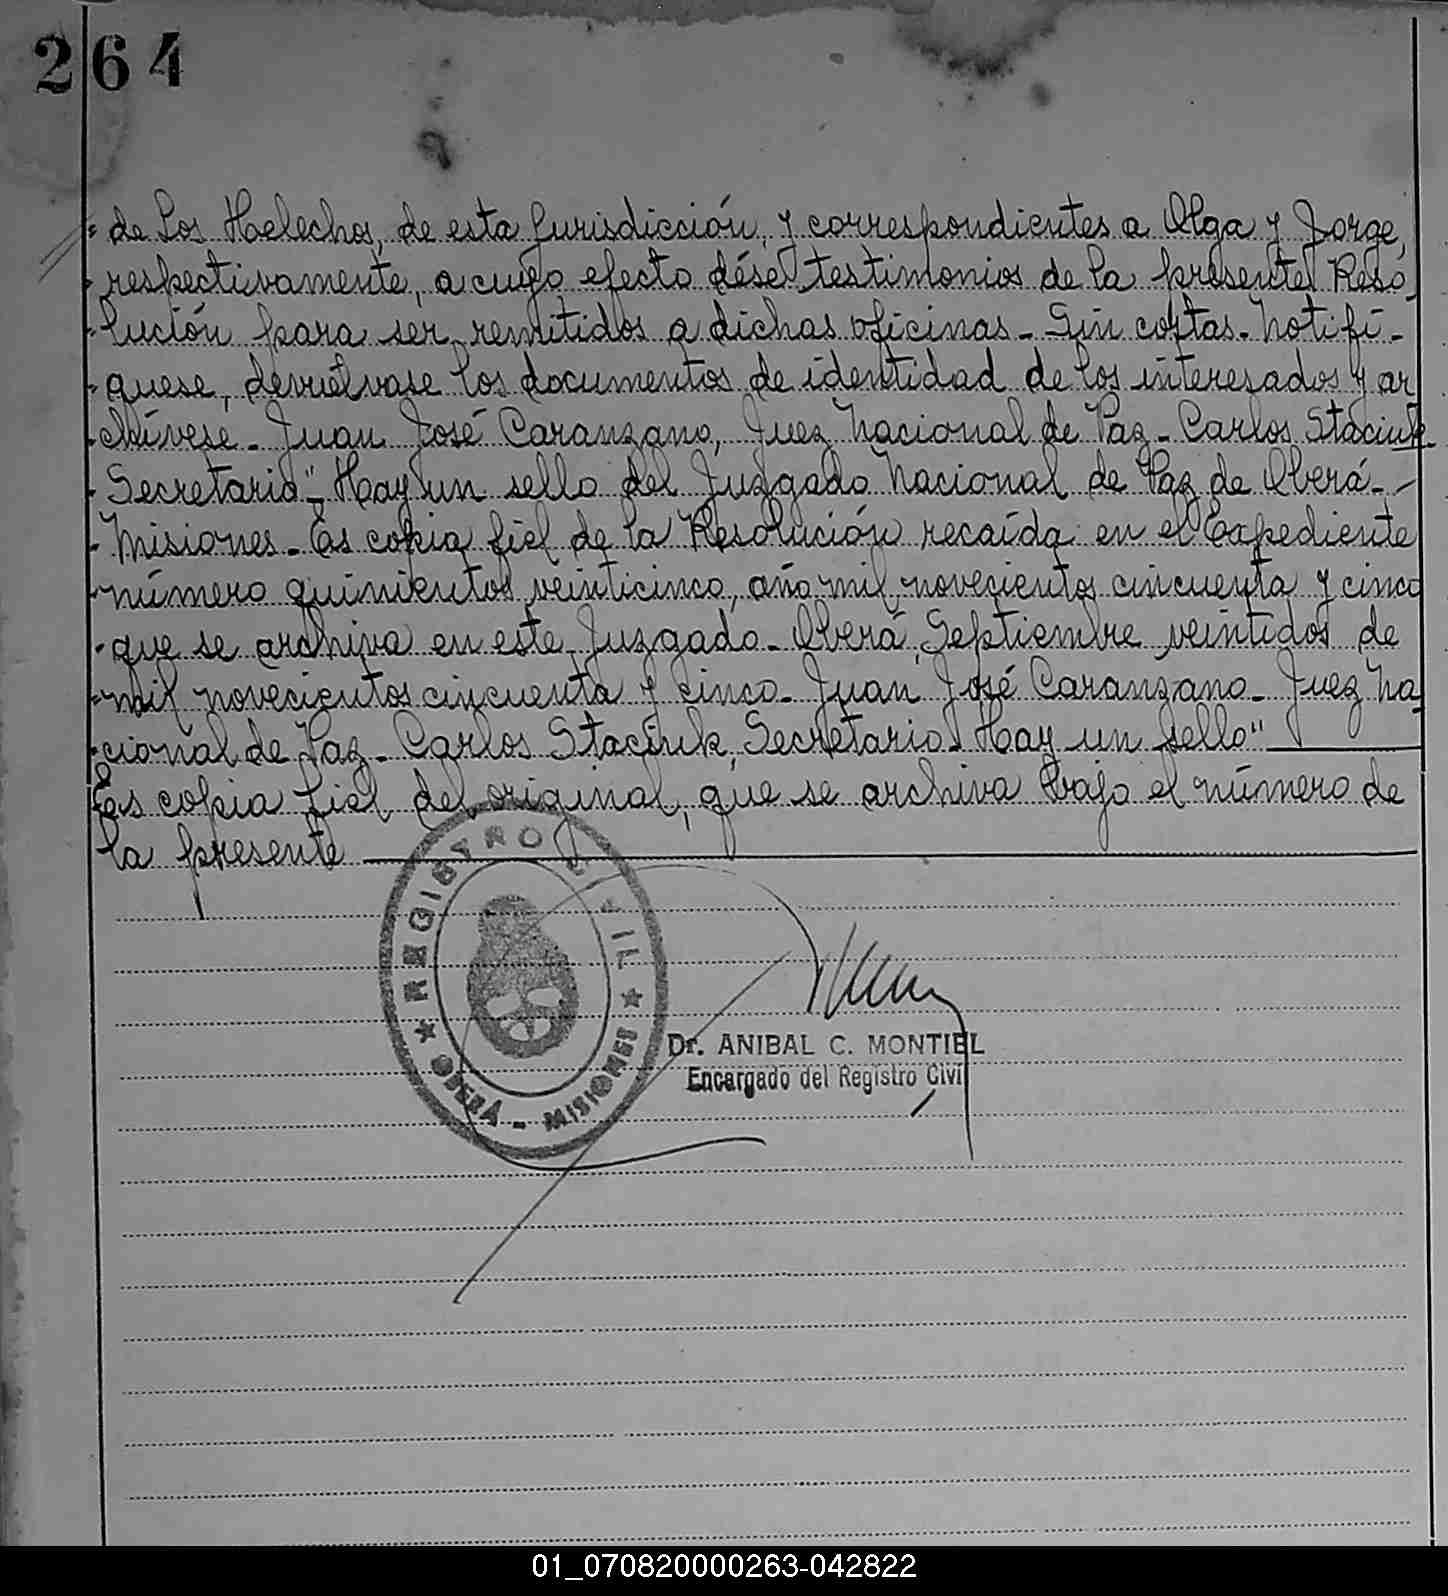 264
de Los Helechos, de esta Jurisdicción, y correspondientes a Olga y Jorge,
respectivamente, a cuyo efecto dése testimonios de la presente Reso-
lución para ser remitidos a dichas oficinas - Sin costas - Notifí-
quese, devuélvase los documentos de identidad de los interesados y ar-
chívese - Juan José Caranzano, Juez Nacional de Paz - Carlos Staciuk
Secretario" - Hay un sello del Juzgado Nacional de Paz de Oberá -
Misiones - Es copia fiel de la Resolución recaída en el Expediente
número quinientos veinticinco, año mil novecientos cincuenta y cinco
que se archiva en este Juzgado - Oberá, Septiembre veintidos de
mil novecientos cincuenta y cinco - Juan José Caranzano - Juez Na-
cional de Paz - Carlos Staciuk, Secretario - Hay un sello"
Es copia fiel del original, que se archiva bajo el número de
la presente
REGISTRO CIVIL
★ OBERÁ - MISIONES ★
Dr. ANIBAL C. MONTIEL
Encargado del Registro Civil
01_070820000263-042822